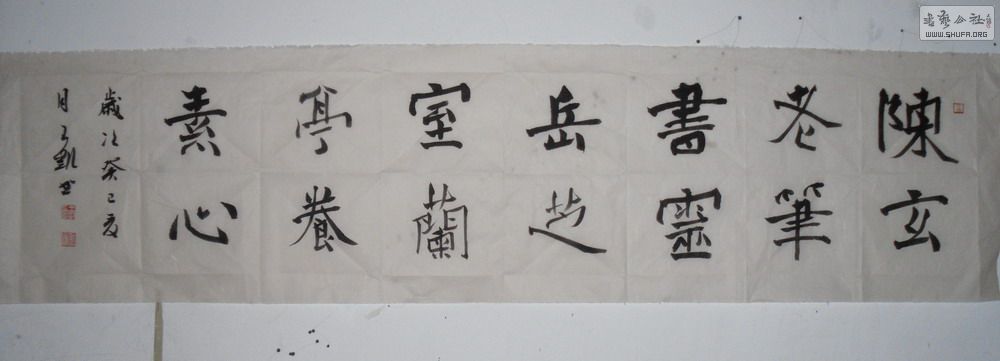 陳玄
老筆
書靈
岳芝
室蘭
亭養
素心
歲次癸巳夏
月子凱书
书艺公社
WWW.SHUFA.ORG